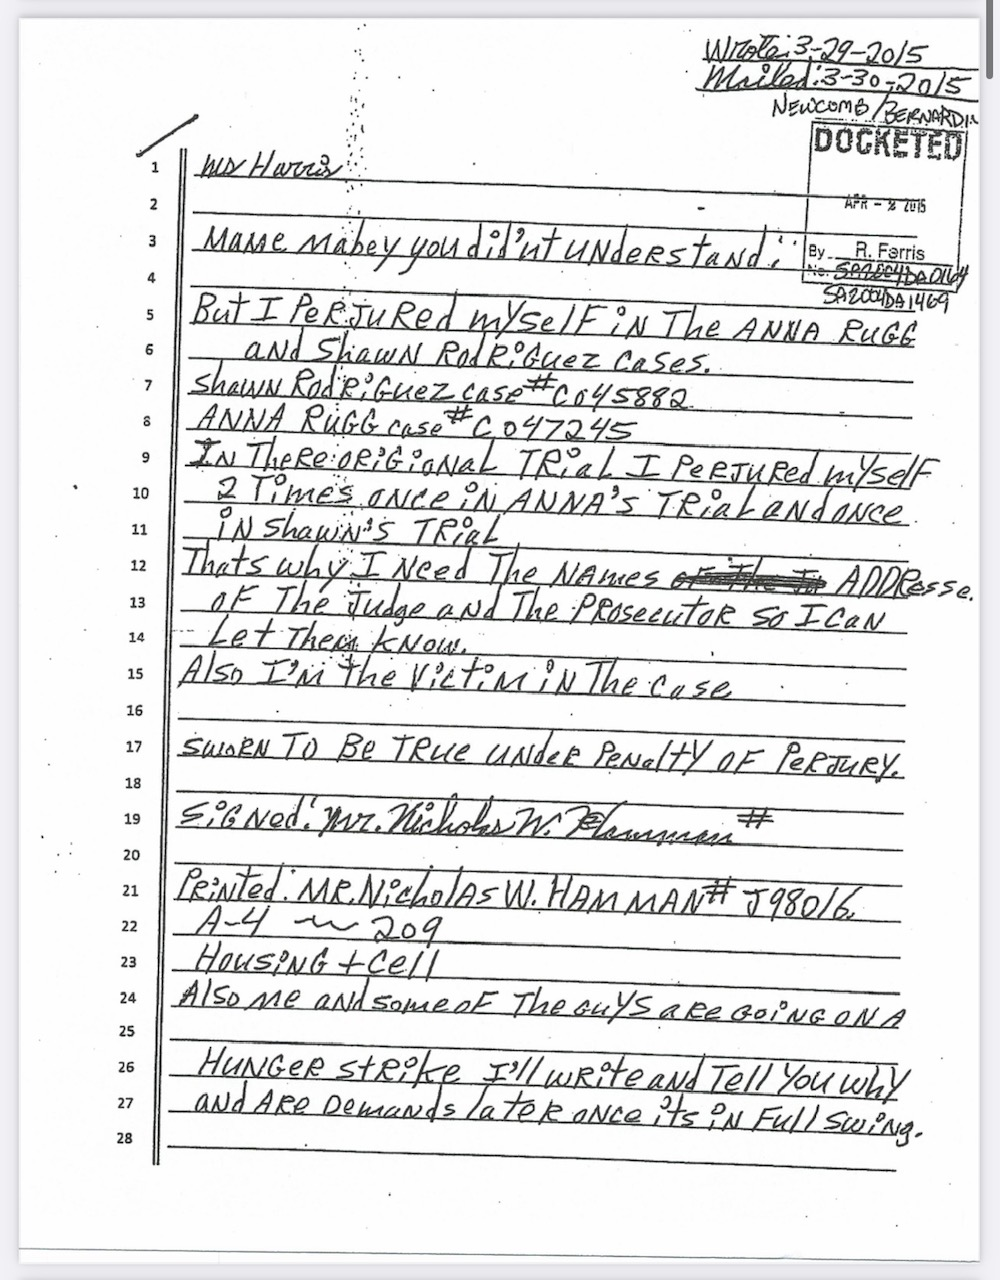 Wrote: 3-29-2015
Mailed: 3-30-2015
NEWCOMB/BERNARDI
DOCKETED
APR - 2 2015
By R. Farris
No. SA2004DA0164
SA2004DA1469
1 Ms Harris
2
3 Mame mabey you did'nt UNDerstand:
4
5 But I PeRJURed mYSelF iN The ANNA RUGG
6 aNd Shawn RodRiGuez cases.
7 Shawn RodRiGuez case # C045882
8 ANNA RUGG case # C047245
9 IN There oRiGioNal TRial I PeRJURed mYself
10 2 Times once iN ANNA's TRial and once
11 iN Shawn's TRial
12 Thats why I Need The NAMes ADDResse.
13 oF The Judge and The PRosecutoR So I CaN
14 Let Them KNow.
15 Also I'm the VictiM iN The case
16
17 SWORN TO Be TRue UNdeR PeNalty OF PeRJURY.
18
19 SiGNed: Mr. Nicholas W. Hamman #
20
21 PRiNted: MR. NicholAs W. HAMMAN # J98016.
22 A-4 ~ 209
23 HousiNG + Cell
24 Also me and some oF The GuYs aRe GoiNG oN A
25
26 HUNGeR stRike I'll wRite and Tell You whY
27 and ARe Demands lateR once its iN Full Swing.
28